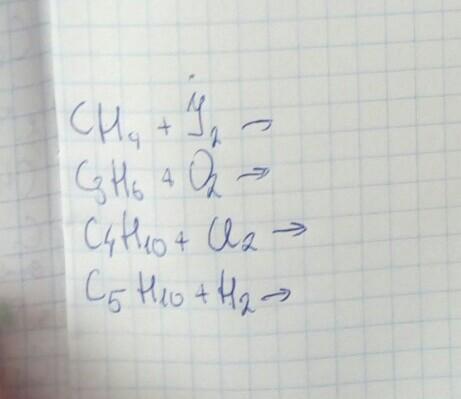 CH₄ + J₂ →
C₃H₆ + O₂ →
C₄H₁₀ + Cl₂ →
C₅H₁₀ + H₂ →